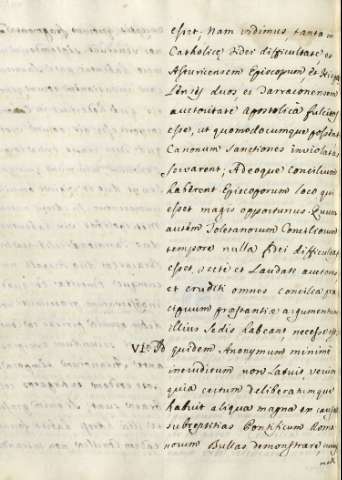 esset, Nam vidimus tanta in
Catholicę Fidei difficultate, et
Asturicensem Episcopum et
duos, et Tarraconensem
auctoritate Apostolica
esse, ut quomodocumque possent
Canonum Sanctiones inviolatas
servarent, Adeoque Concilium
haberent Episcoporum loco qui
esset magis opportunus. Quum
autem Toletanorum Conciliorum
tempore nulla Fidei difficultas
esset, et Laudati
et eruditi omnes Concilia
prostantię argumentum
illius Sedis habeant,
VI. Id quidem Anonymum minimè
ineruditum non Latuit, verum
quia certum deliberatumque
habuit aliqua magna ex
subreptitias Pontificum Roma
norum Bullas demonstrare,